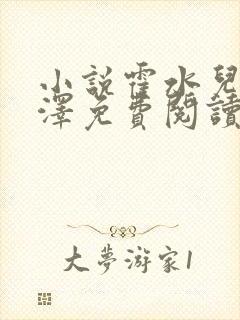 小說霍水兒
澤免費閱讀
大夢游家1